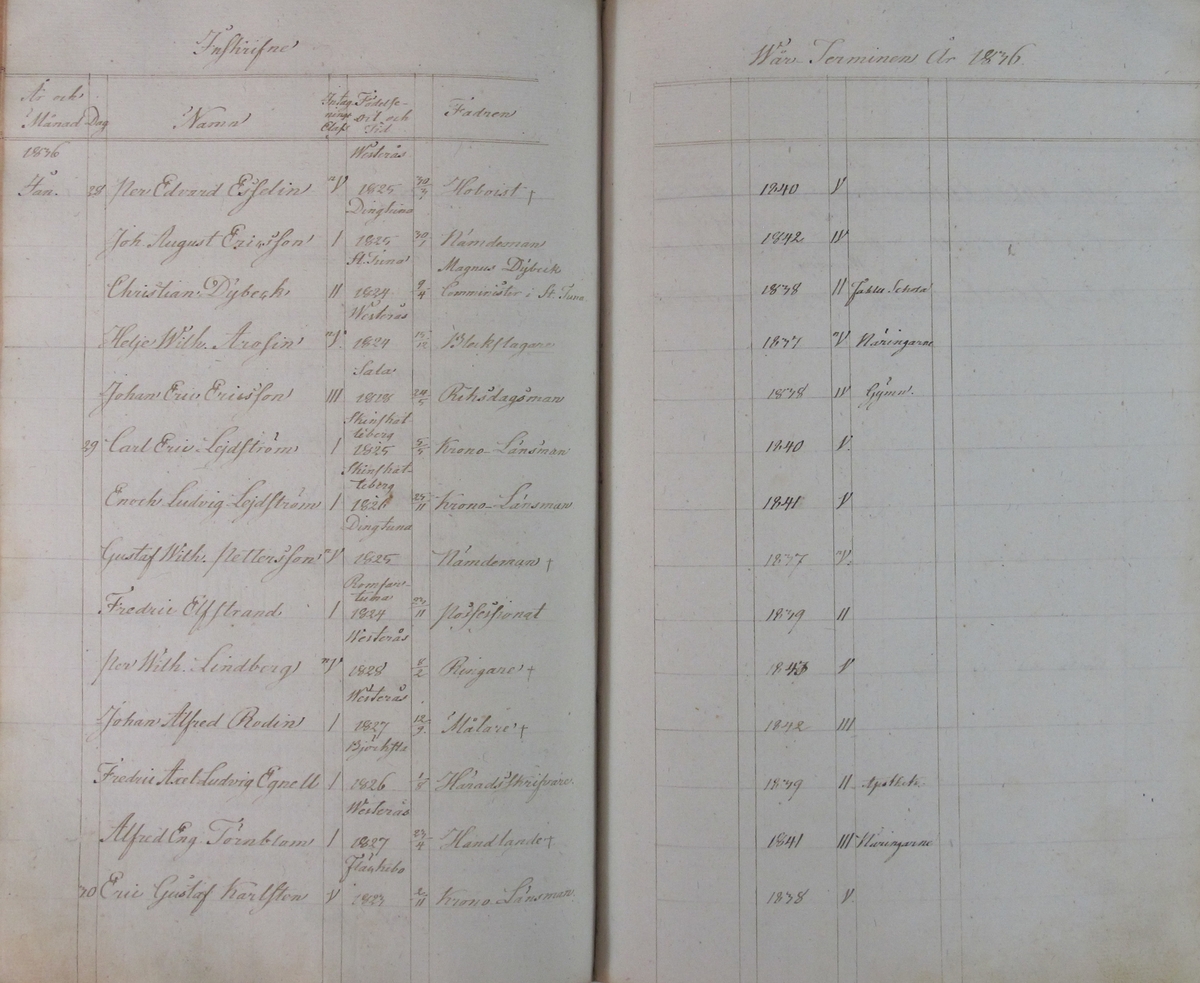 Inskrifne
Wår Terminen År 1836
År och Månad Dag Namn Intagnings Class Födelse- Ort och Tid Fadren
1836 Westerås
Jan. 28 Per Edvard Esselin V 1825 Hoboist † 1840 V
Dingtuna
Joh. August Ericsson I 1825 30/1 Nämdeman 1842 IV
St. Tuna Magnus Dybeck
Christian Dybeck II 1824 9/4 Comminister i St. Tuna 1838 II Fahlu Schola
Westerås
Helje Wilh. Arosin V. 1824 15/12 Blockslagare 1837 V Näringarne
Sala
Johan Eric Ericsson III 1818 24/5 Riksdagsman 1838 IV Gymn.
Skinskat-
teberg
29 Carl Eric Lejdström I 1825 5/5 Krono-Länsman 1840 V.
Skinskat-
teberg
Enoch Ludvig Lejdström I 1826 25/11 Krono-Länsman 1841 V
Dingtuna
Gustaf Wilh. Pettersson V 1825 Nämdeman † 1837 V.
Romfar-
tuna
Fredric Elfstrand I 1824 23/11 Possessionat 1839 II
Westerås
Per Wilh. Lindberg V 1828 8/2 Ringare † 1843 V
Westerås
Johan Alfred Rodin I 1827 12/9 Målare † 1842 III
Björksta
Fredric Axel Ludvig Egnell I 1826 1/8 Häradsskrifvare 1839 II Apothek.
Westerås
Alfred Eng. Törnblom I 1827 23/4 Handlande † 1841 III Näringarne
Fläckebo
30 Eric Gustaf Karlsten V 1823 2/11 Krono Länsman 1838 V.